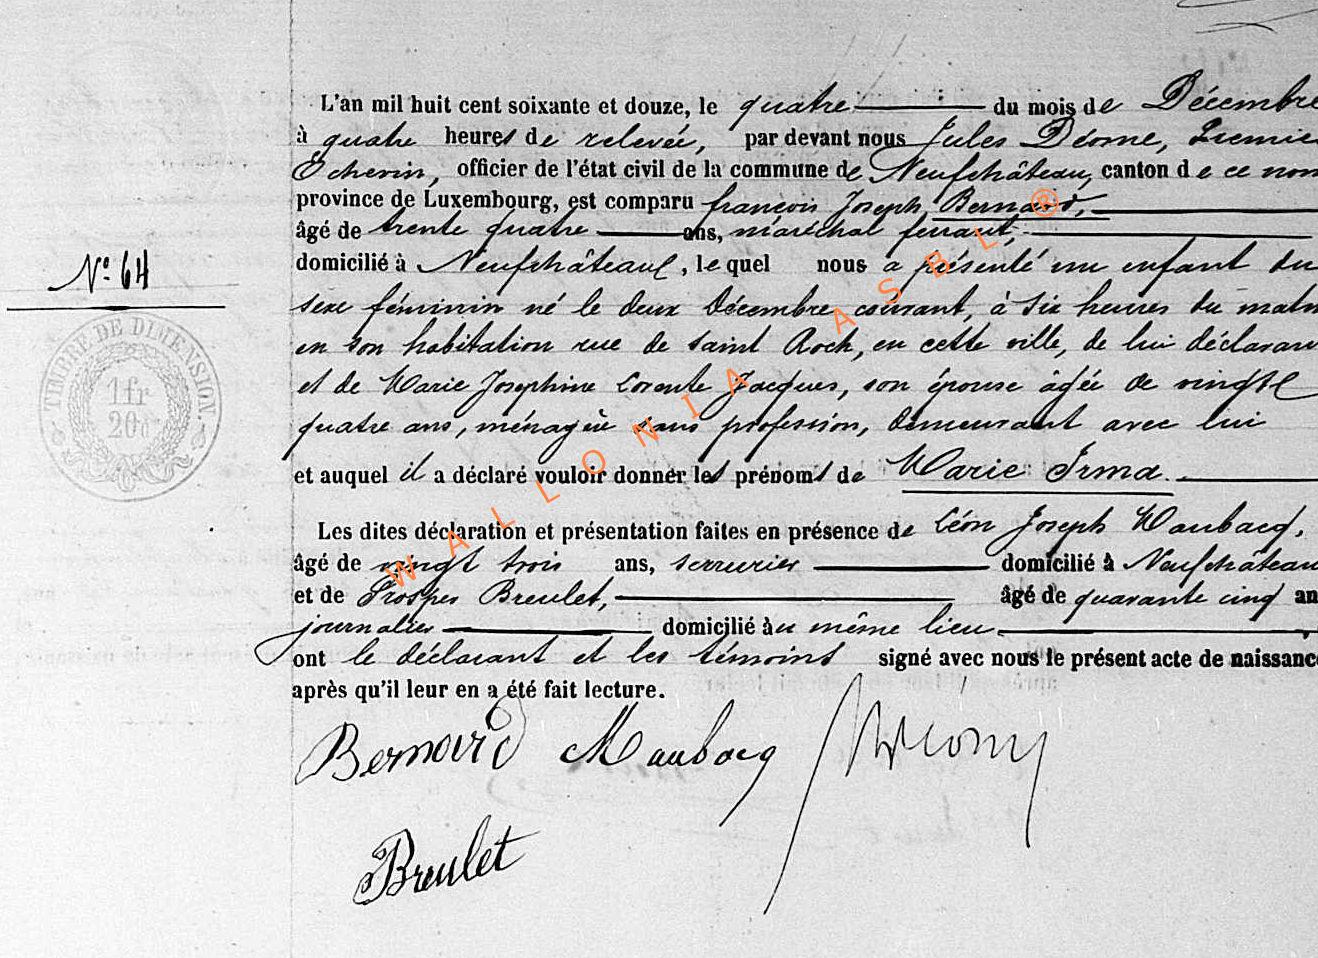 L'an mil huit cent soixante et douze, le quatre du mois de Décembre
à quatre heures de relevée, par devant nous Jules Déome, Premier
Echevin, officier de l'état civil de la commune de Neufchâteau, canton de ce nom
province de Luxembourg, est comparu françois Joseph Bernard,
âgé de trente quatre ans, maréchal ferrant,
N° 64
domicilié à Neufchâteau, lequel nous a présenté un enfant du
sexe féminin né le deux Décembre courant, à six heures du matin
en son habitation rue de saint Roch, en cette ville, de lui déclarant
et de Marie Josephine Jacques, son épouse âgée de vingt
quatre ans, ménagère sans profession, demeurant avec lui
et auquel il a déclaré vouloir donner les prénoms de Marie Irma.
TIMBRE DE DIMENSION.
1 fr
20 c
Les dites déclaration et présentation faites en présence de Léon Joseph Maubacq,
âgé de vingt trois ans, serrurier domicilié à Neufchâteau
et de Prosper Breulet, âgé de quarante cinq an
journalier domicilié au même lieu
ont le déclarant et les témoins signé avec nous le présent acte de naissance
après qu'il leur en a été fait lecture.
Bernard Maubacq
Breulet
WALLONIA ASBL ®